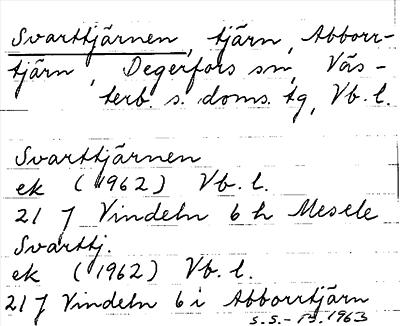 Svarttjärnen, tjärn, Abborr-
tjärn, Degerfors sn, Väs-
terb. s. doms. tg, Vb. l.
Svarttjärnen
ek (1962) Vb. l.
21 J Vindeln 6 h Mesele
Svarttj.
ek (1962) Vb. l.
21 J Vindeln 6 i Abborrtjärn
S.S.- 1963